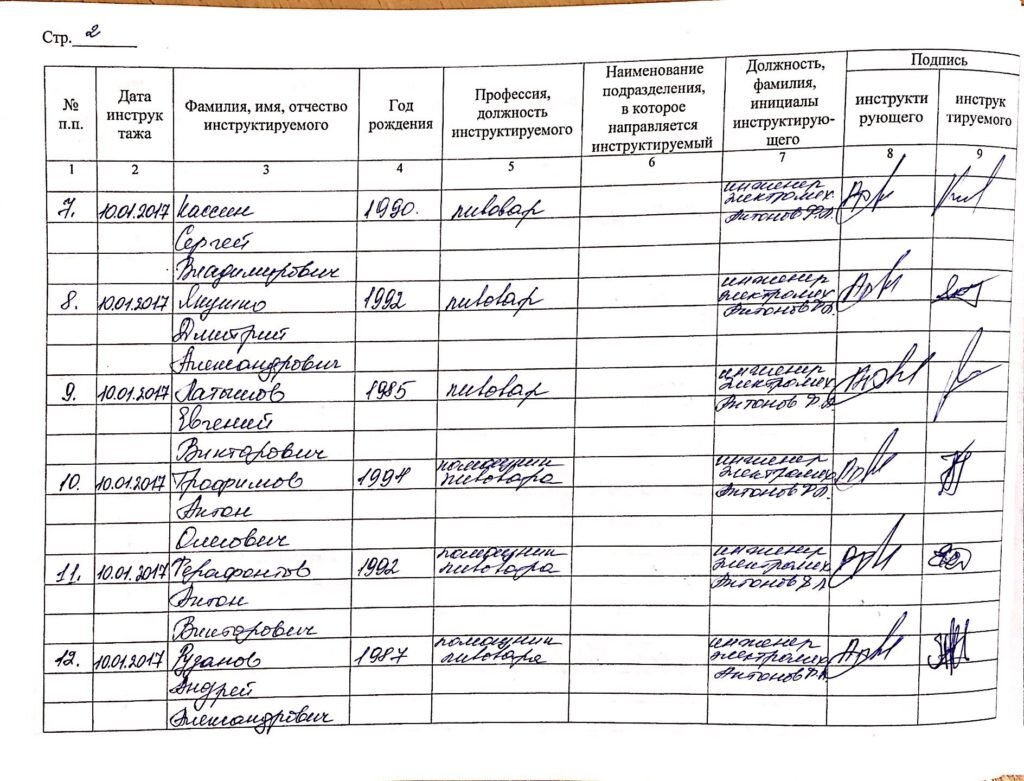 Стр. 2
№ п.п.
Дата инструк тажа
Фамилия, имя, отчество инструктируемого
Год рождения
Профессия, должность инструктируемого
Наименование подразделения, в которое направляется инструктируемый
Должность, фамилия, инициалы инструктирую- щего
Подпись
инструкти рующего
инструк тируемого
1 2 3 4 5 6 7 8 9
7. 10.01.2017 Кассин 1990. пивовар инженер электромех. Антонов Ф.Д.
Сергей
Владимирович
8. 10.01.2017 Якушко 1992 пивовар инженер электромех. Антонов Ф.Д.
Дмитрий
Александрович
9. 10.01.2017 Латышов 1985 пивовар инженер электромех. Антонов Ф.Д.
Евгений
Викторович
10. 10.01.2017 Трофимов 1991 помощник пивовара инженер электромех. Антонов Ф.Д.
Антон
Олегович
11. 10.01.2017 Ферафонтов 1992 помощник пивовара инженер электромех. Антонов Ф.Д.
Антон
Викторович
12. 10.01.2017 Рузанов 1987 помощник пивовара инженер электромех. Антонов Ф.Д.
Андрей
Александрович